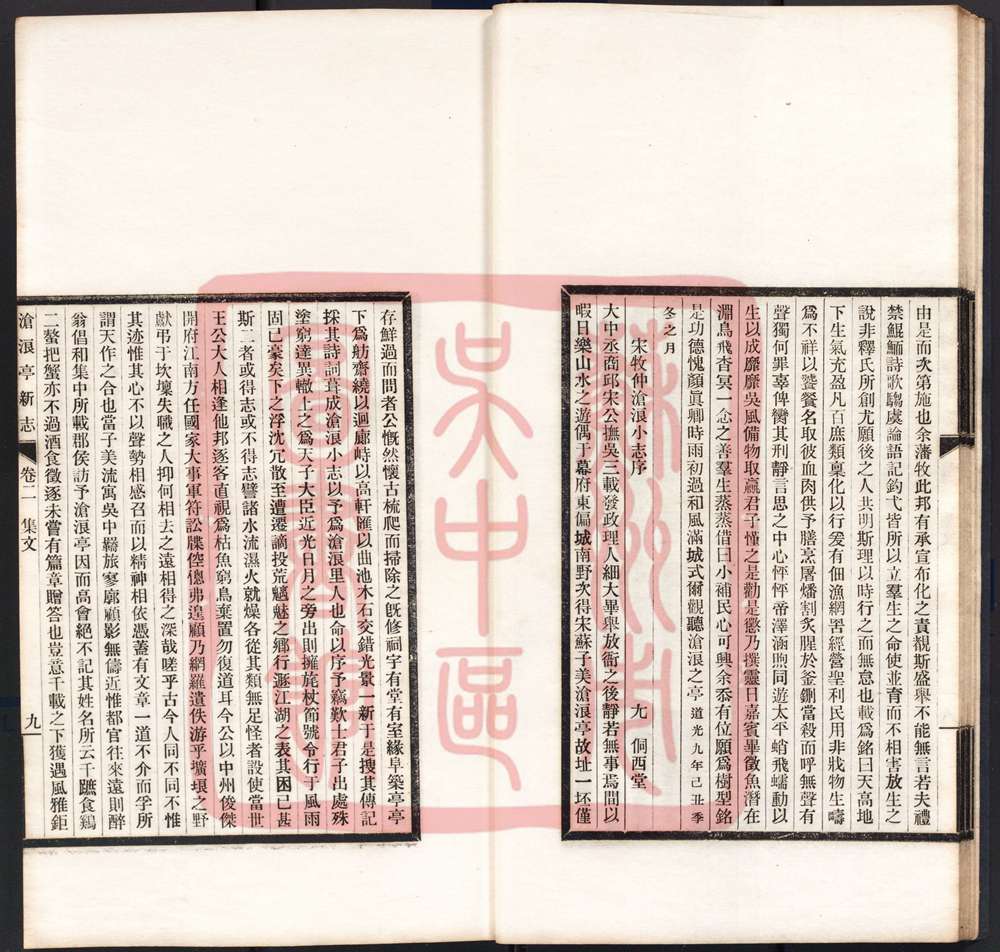 由是而次第施也余藩牧此邦有承宣布化之責覩斯盛舉不能無言若夫禮
禁鯤鮞詩歌騶虞論語記釣弋皆所以立羣生之命使並育而不相害放生之
說非釋氏所創尤願後之人共明斯理以時行之而無怠也載爲銘曰天高地
下生氣充盈凡百庶類稟化以行爰有佃漁網罟經營聖利民用非戕物生疇
爲不祥以饕餮名取彼血肉供予膳烹屠燔割炙腥於釜鉶當殺而呼無聲有
聲獨何罪辜俾臠其刑靜言思之中心怦怦帝澤涵煦同遊太平蛸飛蠕動以
生以成靡靡吳風備物取贏君子憧之是勸是懲乃撰靈日嘉賓畢徵魚潛在
淵鳥飛杳冥一念之善羣生蒸蒸借曰小補民心可興余忝有位願爲樹型銘
是功德愧顏眞卿時雨初過和風滿城式爾觀聽滄浪之亭 道光九年己丑季
冬之月
宋牧仲滄浪小志序 尤侗西堂
大中丞商邱宋公撫吳三載發政理人細大畢舉放衙之後靜若無事焉間以
暇日樂山水之遊偶于幕府東偏城南野次得宋蘇子美滄浪亭故址一坯僅
存鮮過而問者公慨然懷古梳爬而掃除之既修祠宇有堂有室緣阜築亭亭
下爲舫齋繞以迴廊峙以高軒匯以曲池木石交錯光景一新于是搜其傳記
採其詩詞葺成滄浪小志以予爲滄浪里人也命以序予竊歎士君子出處殊
塗窮達異轍上之爲天子大臣近光日月之旁出則擁旄杖節號令行于風雨
固已豪矣下之浮沈冗散至遭遷謫投荒魑魅之鄉行遯江湖之表其困已甚
斯二者或得志或不得志譬諸水流濕火就燥各從其類無足怪者設使當世
王公大人相逢他邦逐客直視爲枯魚窮鳥棄置勿復道耳今公以中州俊傑
開府江南方任國家大事軍符訟牒倥偬弗遑顧乃網羅遺佚游乎壙埌之野
獻弔于坎壈失職之人抑何相去之遠相得之深哉嗟乎古今人同不同不惟
其迹惟其心不以聲勢相感召而以精神相依憑蓋有文章一道不介而孚所
謂天作之合也當子美流寓吳中羈旅寥廓顧影無儔近惟都官往來遠則醉
翁倡和集中所載郡侯訪予滄浪亭因而高會絕不記其姓名所云千蹠食鷄
二螯把蟹亦不過酒食徵逐未嘗有篇章贈答也豈意千載之下獲遇風雅鉅
滄浪亭新志 卷二 集文 九
蘇州市
吳中區